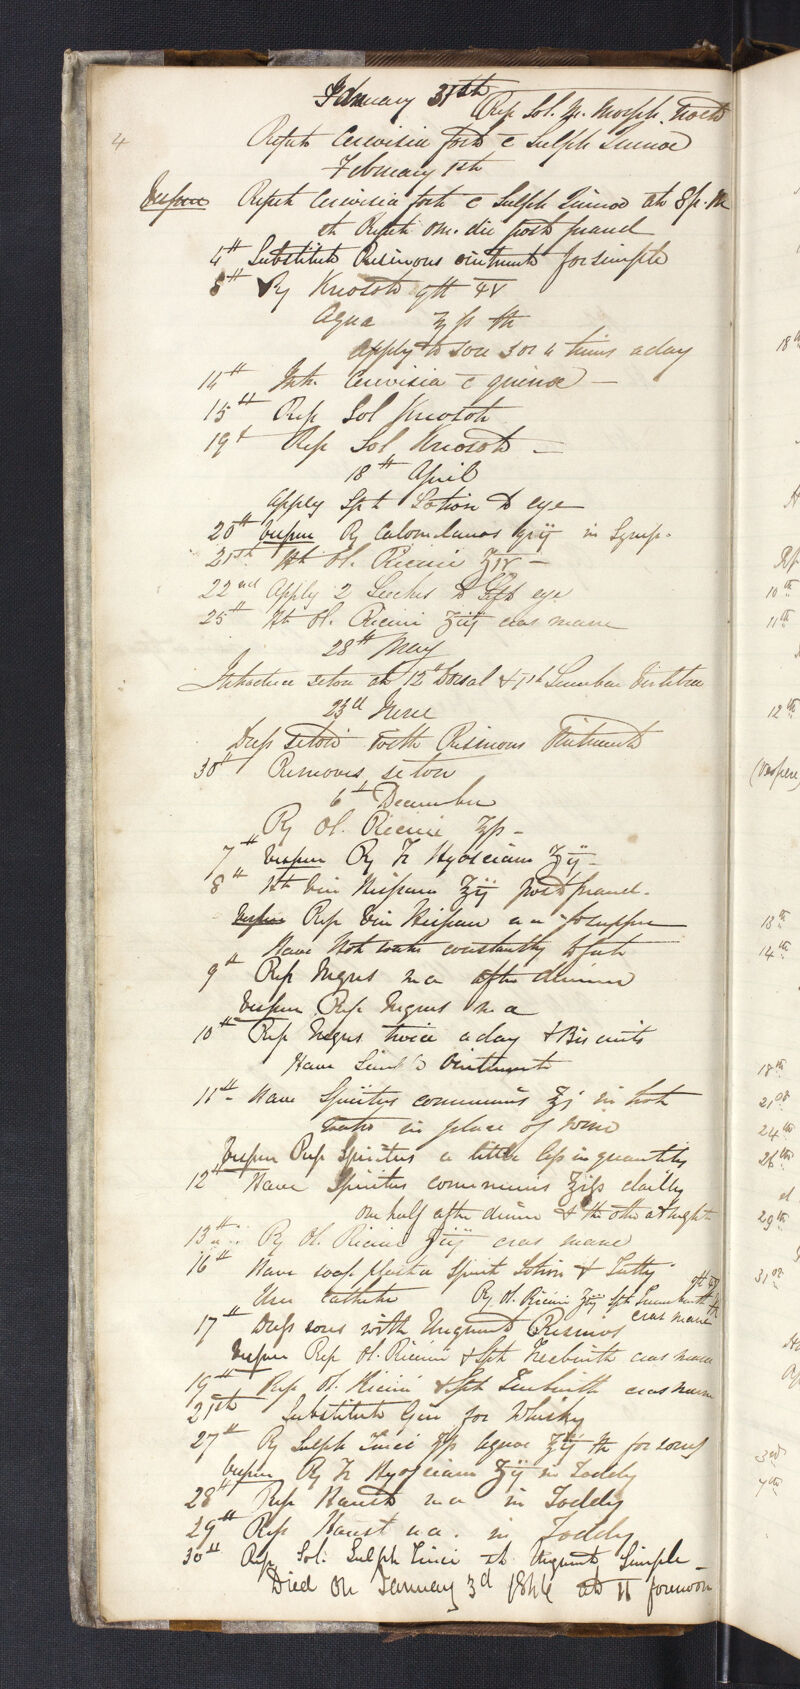 4
February 31st
Rep Sol. M. Morph. nocte
Repete Cerevisia forte c Sulph Quinae
February 1st
Vespere Repete Cerevisia forte c Sulph Quinae at 8 p.m
et Repete om. die post prand
4th Substitute Resinous ointment for simple
8th Rx Kreosote gtt
Aqua ft
Apply to sore 3 or 4 times a day
14th Int. Cerevisia c quinae —
15th Rep Sol Kreosote
19th Rep Sol Kreosote —
18th April
Apply Spt Lotion to eye
20th Vespere Rx Calomelanos griij in Syrup.
21st Ht Ol. Ricini —
22nd Apply 2 Leeches to Left eye
25th Ht. Ol. Ricini ʒiij cras mane
28th May
Introduce seton at 12th Dorsal & 1st Lumbar Vertebrae
23rd June
Dress seton with Resinous Ointment
30th Removes seton
6th December
Rx Ol. Ricini ℥ss —
7th Vespere Rx Tr Hyosciam ʒij —
8th Ht Vin Hispan ℥ij post prand.
Vespere Rep Vin Hispan u a for supper
Have Hot water constantly to feet
9th Rep Negus u a after dinner
Vespere Rep Negus u a
10th Rep Negus twice a day & Biscuits
Have Simple Ointment
11th Have Spiritus communis ℥j in hot
water in place of wine
Vespere Rep Spiritus a little less in quantity
12th Have Spiritus communis ℥iss dailly
one half after dinner & the other at night
13th Rx Ol. Ricini ʒiij cras mane
16th Have soap plaster Spirit Lotion & Tutty
Use Catheter Rx Ol. Ricini ʒiij Spt Terebinth gtt
cras mane
17th Dress sores with Unguent Resinos
Vespere Rep Ol. Ricini & Spt Terebinth cras mane
19th Rep Ol. Ricini & Spt Terebinth cras mane
21st Substitute Gin for Whisky
27th Rx Sulph Zinci ʒss Aquae ℥iij ft for sores
Vespere Rx Tr Hyosciam ʒij in Toddy
28th Rep Haust u a in Toddy
29th Rep Haust u a. in Toddy
30th Rep Sol: Sulph Zinci et Unguent Simple —
Died on January 3d 1846 at 11 forenoon
18th
10th
11th
12th
(Vespere)
13th
14th
18th
21st
24th
26th
29th
31st
3rd
7th